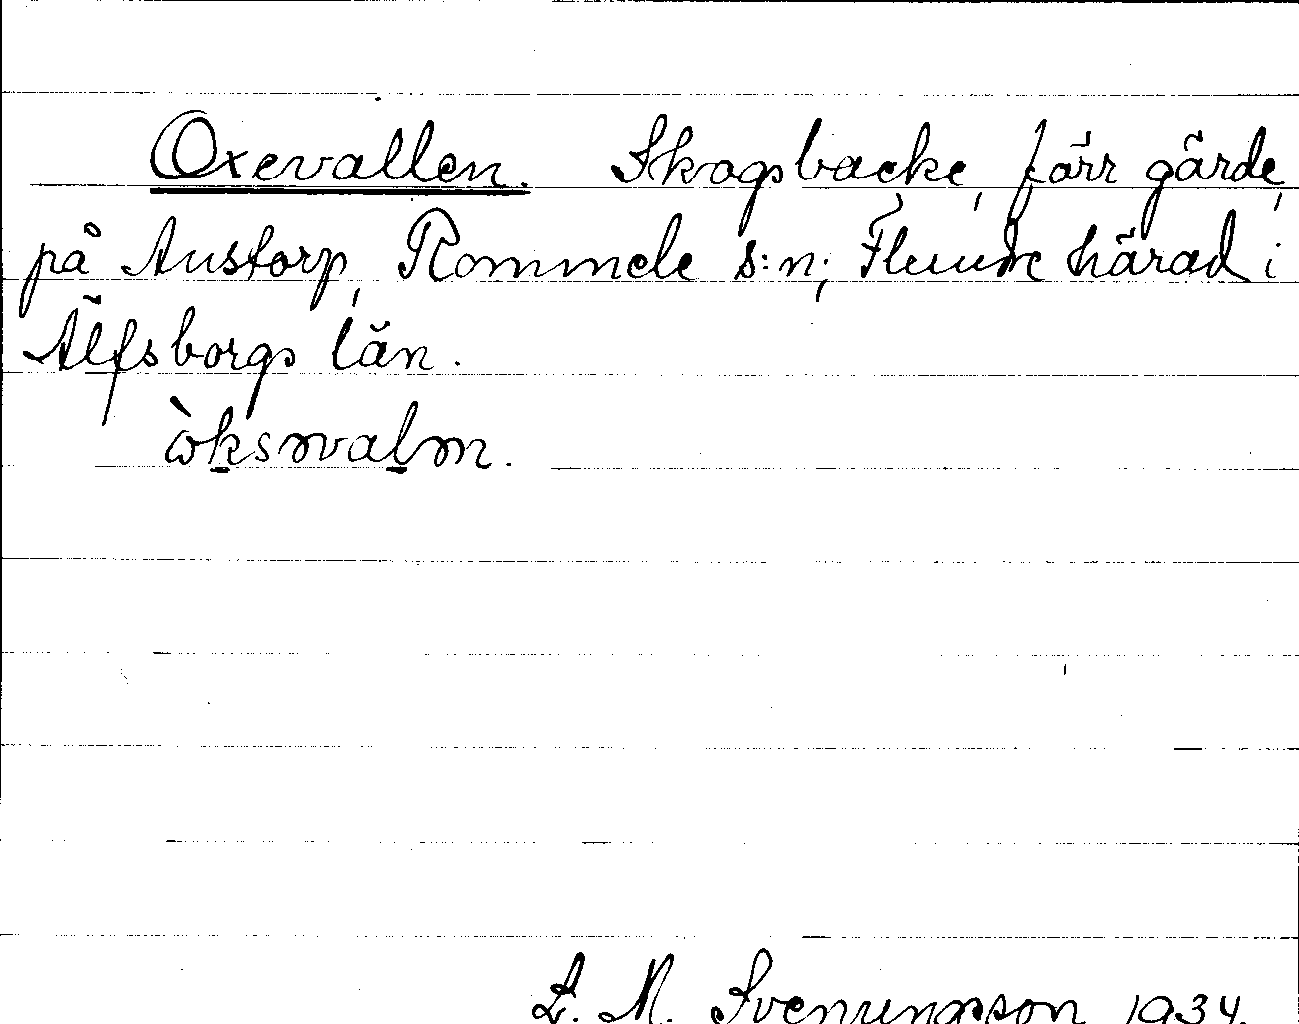 Oxevallen. Skogsbacke, förr gärde,
på Austorp, Rommele s:n; Flundre härad i
Älfsborgs län.
L. M. Svenungsson 1934.